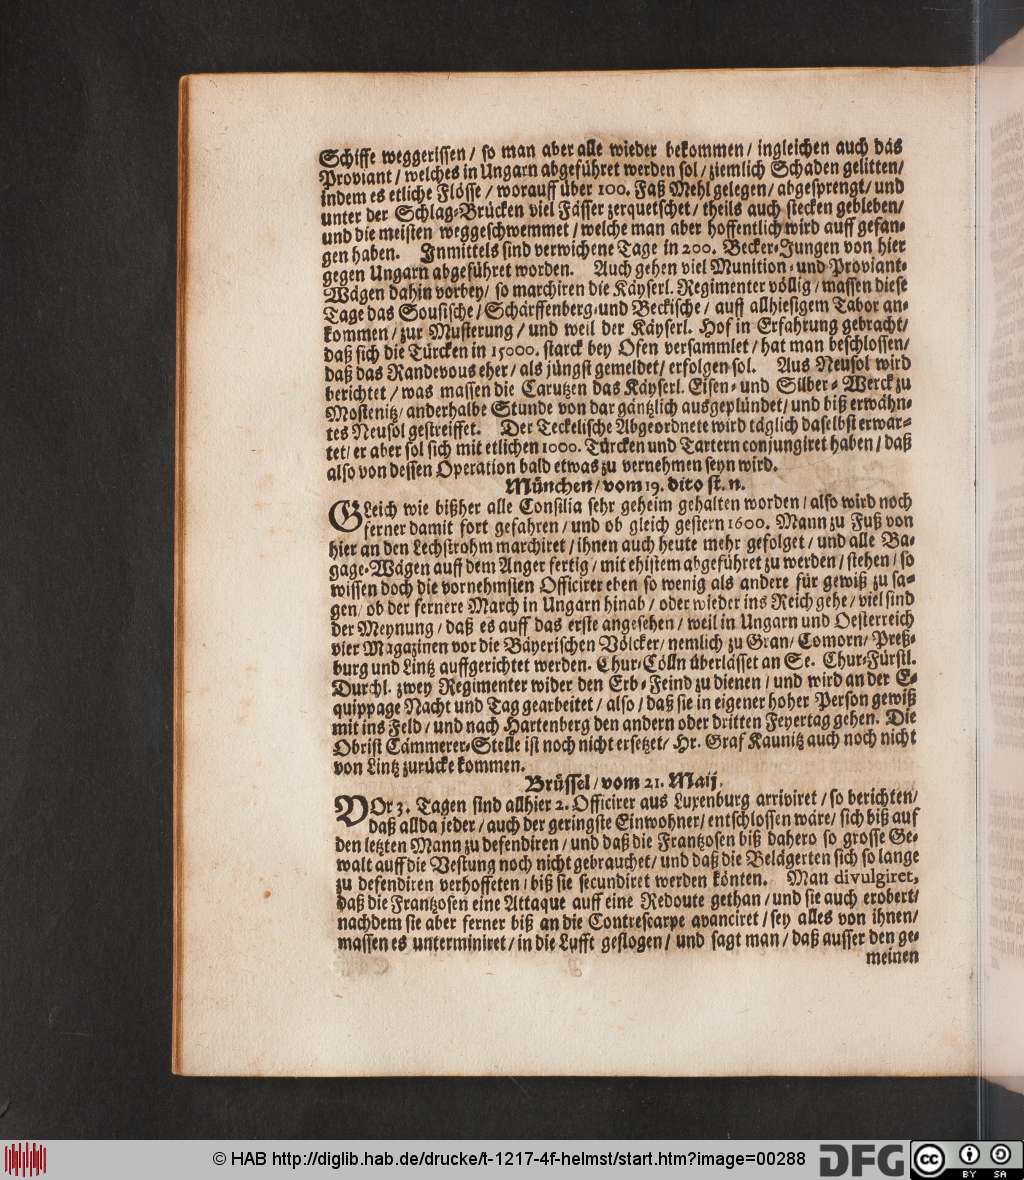 Schiffe weggerissen / so man aber alle wieder bekommen / ingleichen auch das
Proviant / welches in Ungarn abgeführet werden sol / ziemlich Schaden gelitten /
indem es etliche Flösse / worauff über 100. Faß Mehl gelegen / abgesprengt / und
unter der Schlag-Brücken viel Fässer zerquetschet / theils auch stecken gebleben /
und die meisten weggeschwemmet / welche man aber hoffentlich wird auff gefan-
gen haben. Inmittels sind verwichene Tage in 200. Becker-Jungen von hier
gegen Ungarn abgeführet worden. Auch gehen viel Munition- und Proviant-
Wägen dahin vorbey / so marchiren die Käyserl. Regimenter völlig / massen diese
Tage das Sousische / Schärffenberg-und Beckische / auff allhiesigem Tabor an-
kommen / zur Musterung / und weil der Käyserl. Hof in Erfahrung gebracht /
daß sich die Türcken in 15000. starck bey Ofen versammlet / hat man beschlossen /
daß das Randevous eher / als jüngst gemeldet / erfolgen sol. Aus Neusol wird
berichtet / was massen die Carutzen das Käyserl. Eisen- und Silber-Werck zu
Mostenitz / anderhalbe Stunde von dar gäntzlich ausgeplündet / und biß erwähn-
tes Neusol gestreiffet. Der Teckelische Abgeordnete wird täglich daselbst erwar-
tet / er aber sol sich mit etlichen 1000. Türcken und Tartern conjungiret haben / daß
also von dessen Operation bald etwas zu vernehmen seyn wird.
München / vom 19. dito st. n.
GLeich wie bißher alle Consilia sehr geheim gehalten worden / also wird noch
ferner damit fort gefahren / und ob gleich gestern 1600. Mann zu Fuß von
hier an den Lechstrohm marchiret / ihnen auch heute mehr gefolget / und alle Ba-
gage-Wägen auff dem Anger fertig / mit ehistem abgeführet zu werden / stehen / so
wissen doch die vornehmsten Officirer eben so wenig als andere für gewiß zu sa-
gen / ob der fernere March in Ungarn hinab / oder wieder ins Reich gehe / viel sind
der Meynung / daß es auff das erste angesehen / weil in Ungarn und Oesterreich
vier Magazinen vor die Bäyerischen Völcker / nemlich zu Gran / Comorn / Preß-
burg und Lintz auffgerichtet werden. Chur-Cölln überlässet an Se. Chur-Fürstl.
Durchl. zwey Regimenter wider den Erb-Feind zu dienen / und wird an der E-
quippage Nacht und Tag gearbeitet / also / daß sie in eigener hoher Person gewiß
mit ins Feld / und nach Hartenberg den andern oder dritten Feyertag gehen. Die
Obrist Cämmerer-Stelle ist noch nicht ersetzet / Hr. Graf Kaunitz auch noch nicht
von Lintz zurücke kommen.
Brüssel / vom 21. Maij.
VOr 3. Tagen sind allhier 2. Officirer aus Luxenburg arriviret / so berichten /
daß allda jeder / auch der geringste Einwohner / entschlossen wäre / sich biß auf
den letzten Mann zu defendiren / und daß die Frantzosen biß dahero so grosse Ge-
walt auff die Vestung noch nicht gebrauchet / und daß die Belägerten sich so lange
zu defendiren verhoffeten / biß sie secundiret werden könten. Man divulgiret,
daß die Frantzosen eine Attaque auff eine Redoute gethan / und sie auch erobert /
nachdem sie aber ferner biß an die Contrescarpe avanciret / sey alles von ihnen /
massen es unterminiret / in die Lufft geflogen / und sagt man / daß ausser den ge-
meinen
© HAB http://diglib.hab.de/drucke/t-1217-4f-helmst/start.htm?image=00288
DFG
cc
BY SA